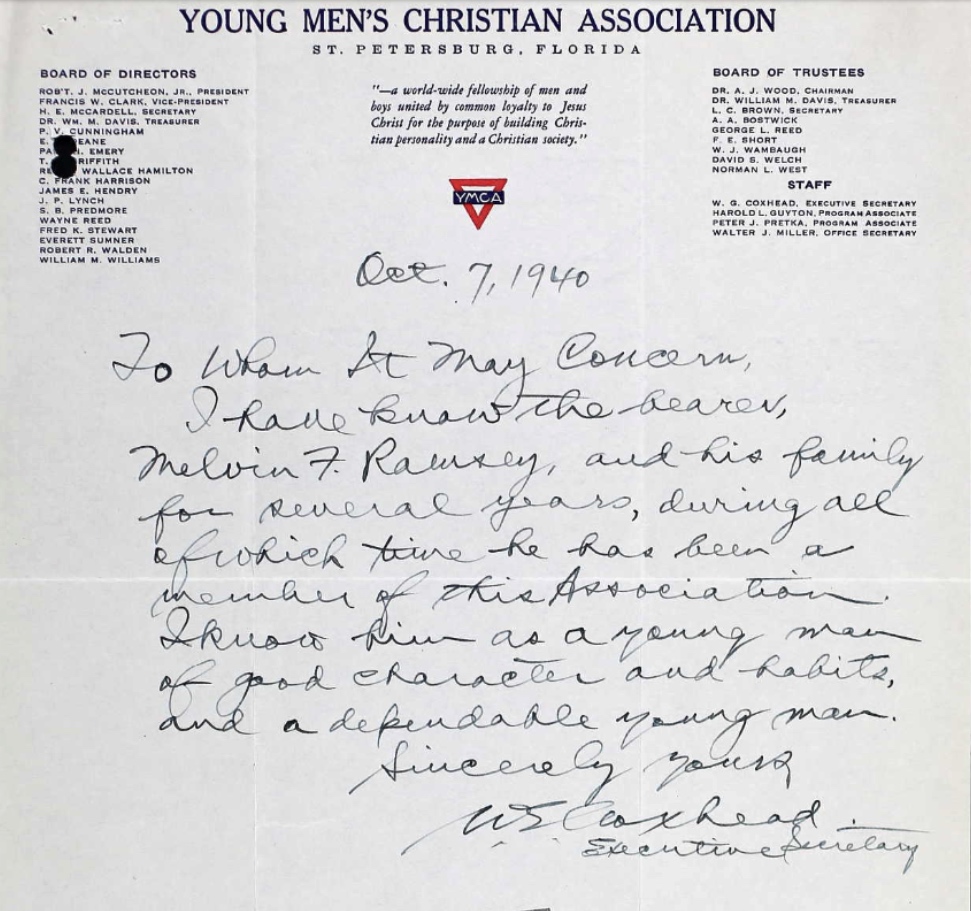 YOUNG MEN'S CHRISTIAN ASSOCIATION
ST. PETERSBURG, FLORIDA
BOARD OF DIRECTORS
ROB'T. J. McCUTCHEON, JR., PRESIDENT
FRANCIS W. CLARK, VICE-PRESIDENT
H. E. McCARDELL, SECRETARY
DR. WM. M. DAVIS, TREASURER
P. V. CUNNINGHAM
E. EANE
EMERY
T. RIFFITH
WALLACE HAMILTON
C. FRANK HARRISON
JAMES E. HENDRY
J. P. LYNCH
S. B. PREDMORE
WAYNE REED
FRED K. STEWART
EVERETT SUMNER
ROBERT R. WALDEN
WILLIAM M. WILLIAMS
"—a world-wide fellowship of men and
boys united by common loyalty to Jesus
Christ for the purpose of building Chris-
tian personality and a Christian society."
YMCA
BOARD OF TRUSTEES
DR. A. J. WOOD, CHAIRMAN
DR. WILLIAM M. DAVIS, TREASURER
L. C. BROWN, SECRETARY
A. A. BOSTWICK
GEORGE L. REED
F. E. SHORT
W. J. WAMBAUGH
DAVID S. WELCH
NORMAN L. WEST
STAFF
W. G. COXHEAD, EXECUTIVE SECRETARY
HAROLD L. GUYTON, PROGRAM ASSOCIATE
PETER J. PRETKA, PROGRAM ASSOCIATE
WALTER J. MILLER, OFFICE SECRETARY
Oct. 7, 1940
To Whom It May Concern,
I have know the bearer,
Melvin F. Ramsey, and his family
for several years, during all
of which time he has been a
member of this Association.
I know him as a young man
of good character and habits,
and a dependable young man.
Sincerely yours
W G Coxhead.
Executive Secretary